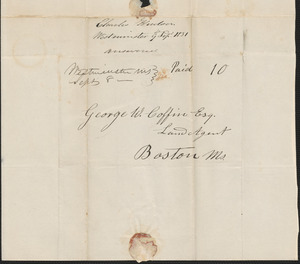 Charles Hudson
Westminster 7 Sept. 1831
answered
Westminster Ms Paid 10
Sept 8
George W. Coffin Esq.
Land Agent
Boston Ms